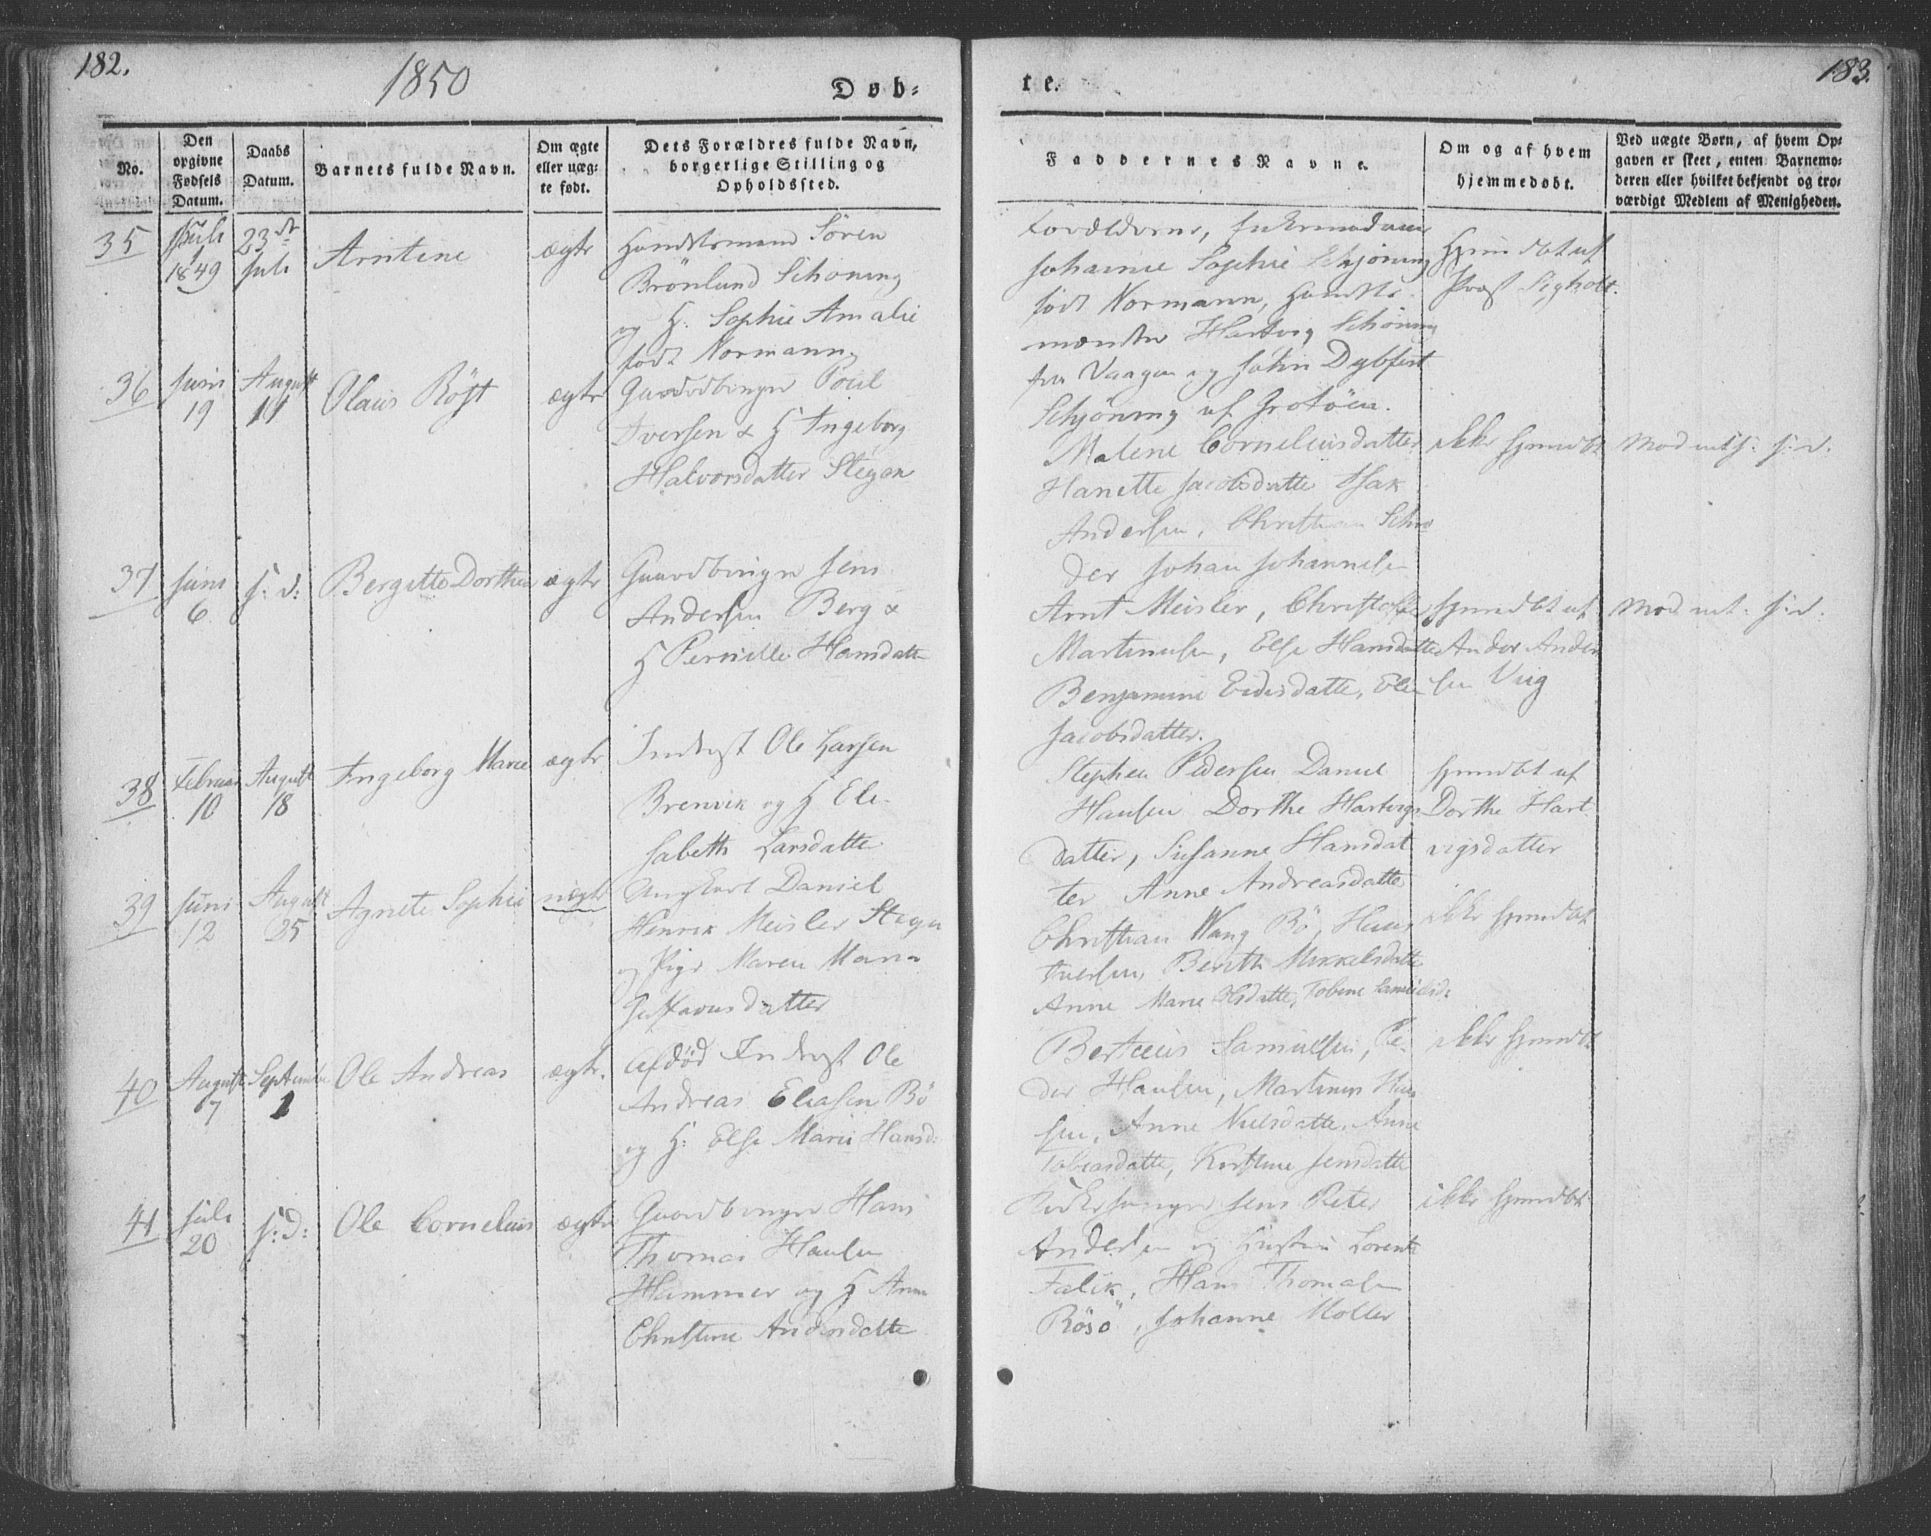 182.
1850
Døb-
te.
183.
No.
Den opgivne Fødsels Datum.
Daabs Datum.
Barnets fulde Navn.
Om ægte eller uæg-te født.
Dets Forældres fulde Navn, borgerlige Stilling og Opholdssted.
Faddernes Navne.
Om og af hvem hjemmedøbt.
Ved uægte Børn, af hvem Op-gaven er skeet, enten Barnemo-deren eller hvilket bekjendt og tro-værdigt Medlem af Menigheden.
35
1849
23de
Juli
Arntine
ægte
Handelsmand Sören
Brönlund Schöning
og H. Sophie Amalie
født Normann
Forældrene,
Johanne Sophie Schjöning
født Normann, Handels-
mændene Hartvig Schöning
fra Vaagen og John Dybfest
Schjöning af Grotöen.
Hjemdbt af
Præst
36
Juni
19
August
11
Olaus Röst
ægte
Gaardbruger Poul
Iversen & H Ingeborg
Halvorsdatter Stegen
Malene Corneliusdatter
Hanette Jacobsdatte Isak
Andersen, Christian Schrö
der Johan Johannesen
ikke hjemdbt
37
Juni
6
s: d:
Bergitte Dorthea
ægte
Gaardbruger Jens
Andersen Berg &
H Pernille Hansdatte
Arnt Meisler, Christoffer
Martinusen, Else Hansdatte
Benjamine Eidisdatte, Elen
Jacobsdatter.
hjemdbt af
Ander Ander
sen Viig
38
Februar
10
August
18
Ingeborg Marie
ægte
Inderst Ole Larsen
Brenvik og H Eli-
sabeth Larsdatte
Stephen Pedersen Daniel
Hansen Dorthe Hartvigs
datter, Susanne Hansdat
ter Anne Andreasdatte
hjemdbt af
Dorthe Hart
vigsdatter
39
Juni
12
August
25
Agnete Sophie
uægte
Ungkarl Daniel
Henrik Meisler Stegen
og Pige Maren Maria
Gustavusdatter
Christian Wang Bö, Hans
Iversen, Berith Mikkelsdatte
Anne Marie Olsdatte,
ikke hjemdbt
40
August
7
September
1
Ole Andreas
ægte.
Afdöd Inderst Ole
Andreas Eliasen Bö
og H: Else Marie Hansd:
Berteus Samuelsen, Pe-
der Hansen, Martinus Han
sen, Anne Nielsdatte, Anne
Tobiasdatte, Kirstine Jensdatte
ikke hjemdbt
41
Juli
20
s: d:
Ole Cornelius
ægte
Gaardbruger Hans
Thomas Hansen
Hammer og H Anne
Christine Andersdatte
Kirkesanger Jens Peter
Andersen og Lorents
Falik, Hans Thomasen
Rösö, Johanne Moller
ikke hjemdbt